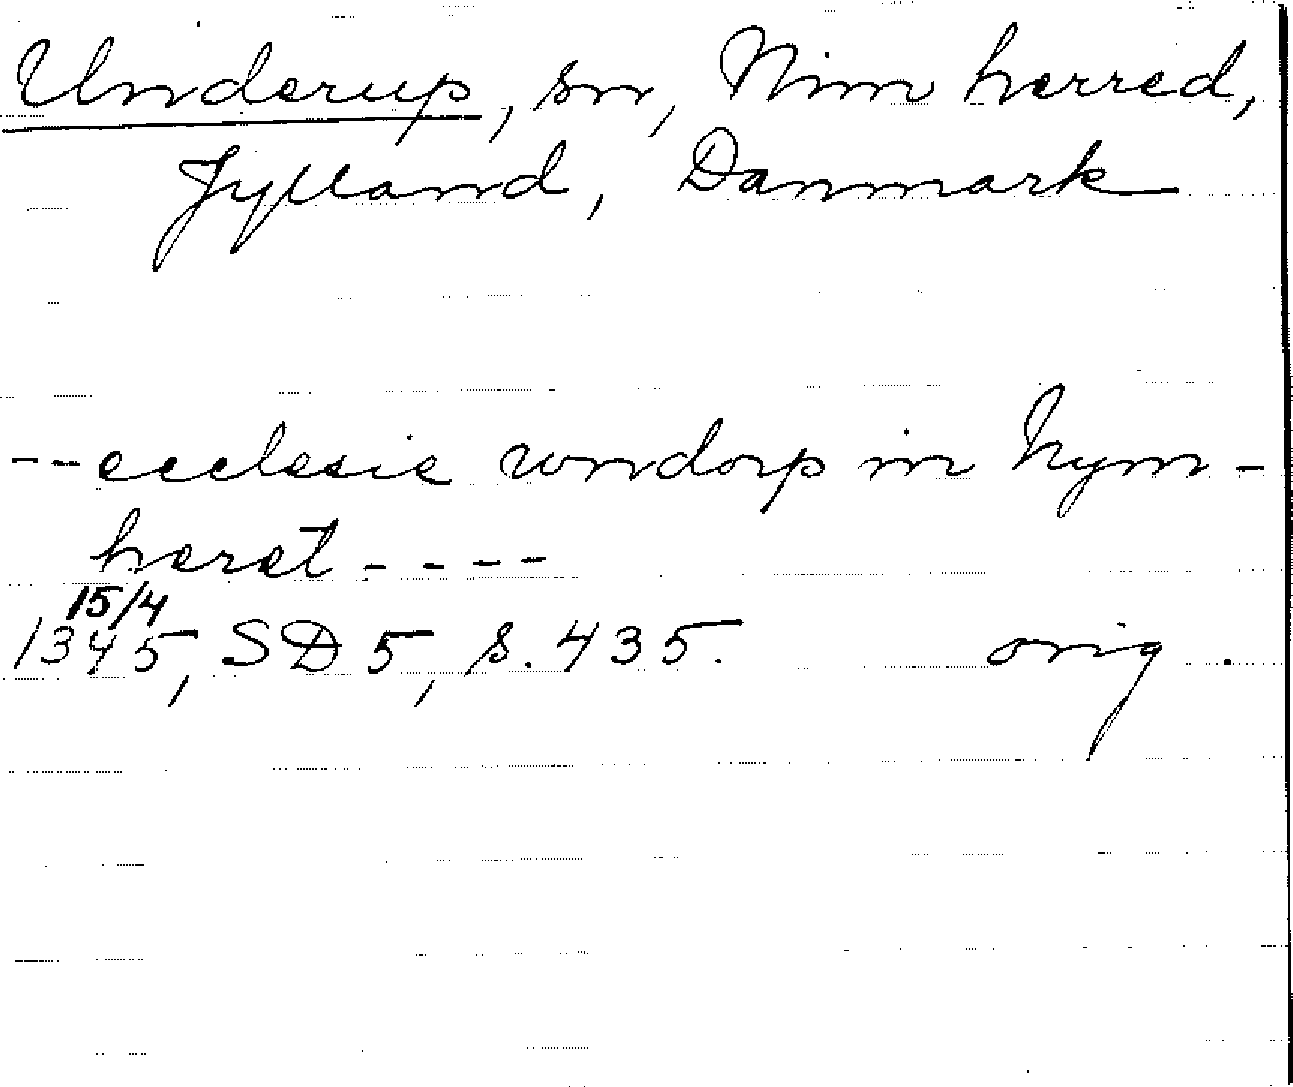 Underup, sn, Nim herred,
Jylland, Danmark
--ecclesie wndorp in Nym-
heret----
15/4
1345, SD 5, s. 435. orig.